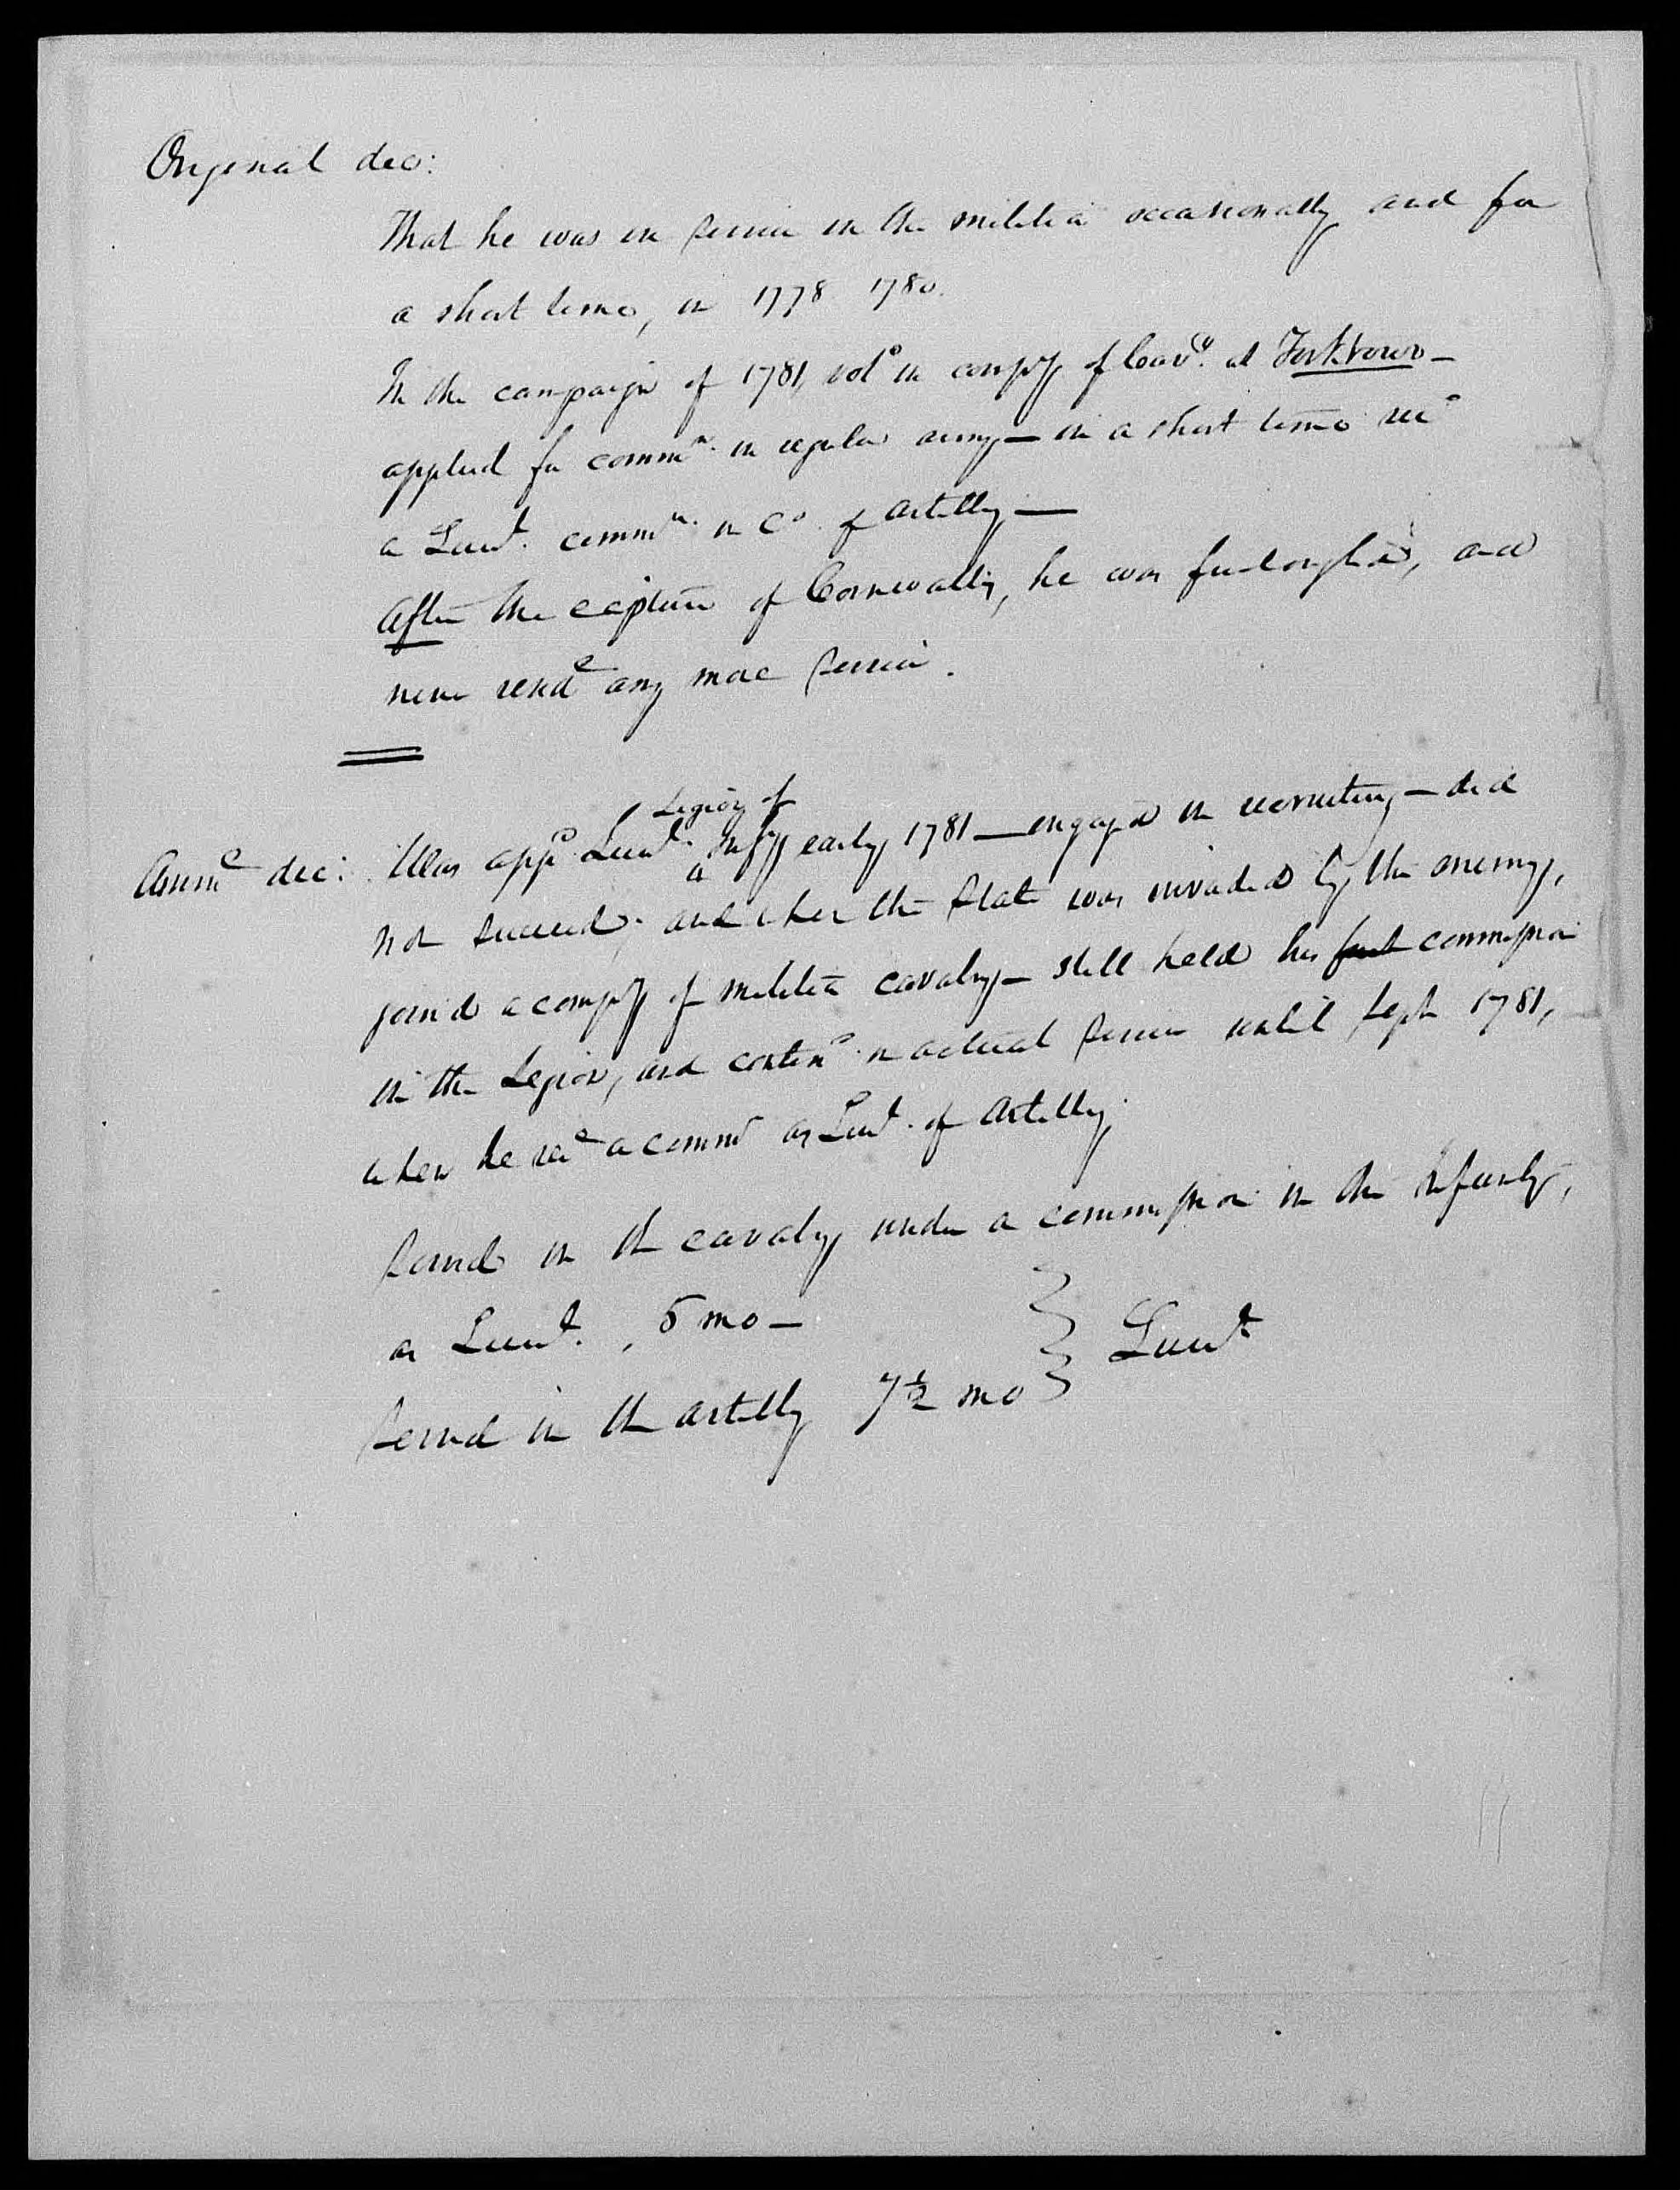 Original dec:
That he was in service in the militia occasionally and for
a short time, in 1778 1780.
In the campaign of 1781, vold in compy of Cavy. at Yorktown —
applied for commn. in regular army — in a short time recd
a Lieut. commn. in Co. of Artilly —
After the capture of Cornwallis, he was furloughed, and
never rend any more service.
Amend dec: Was appd Lieut. Legion of Infy early 1781 — engaged in recruiting — did
not succeed; and when the State was invaded by the enemy,
joined a compy of militia cavalry — still held his commission
in the Legion, and contind in actual service until Sept 1781,
when he recd a comm as Lieut. of Artilly.
Served in the cavalry under a commission in the Infantry,
as Lieut., 5 mo —
Lieut
Served in the artilly 7½ mo